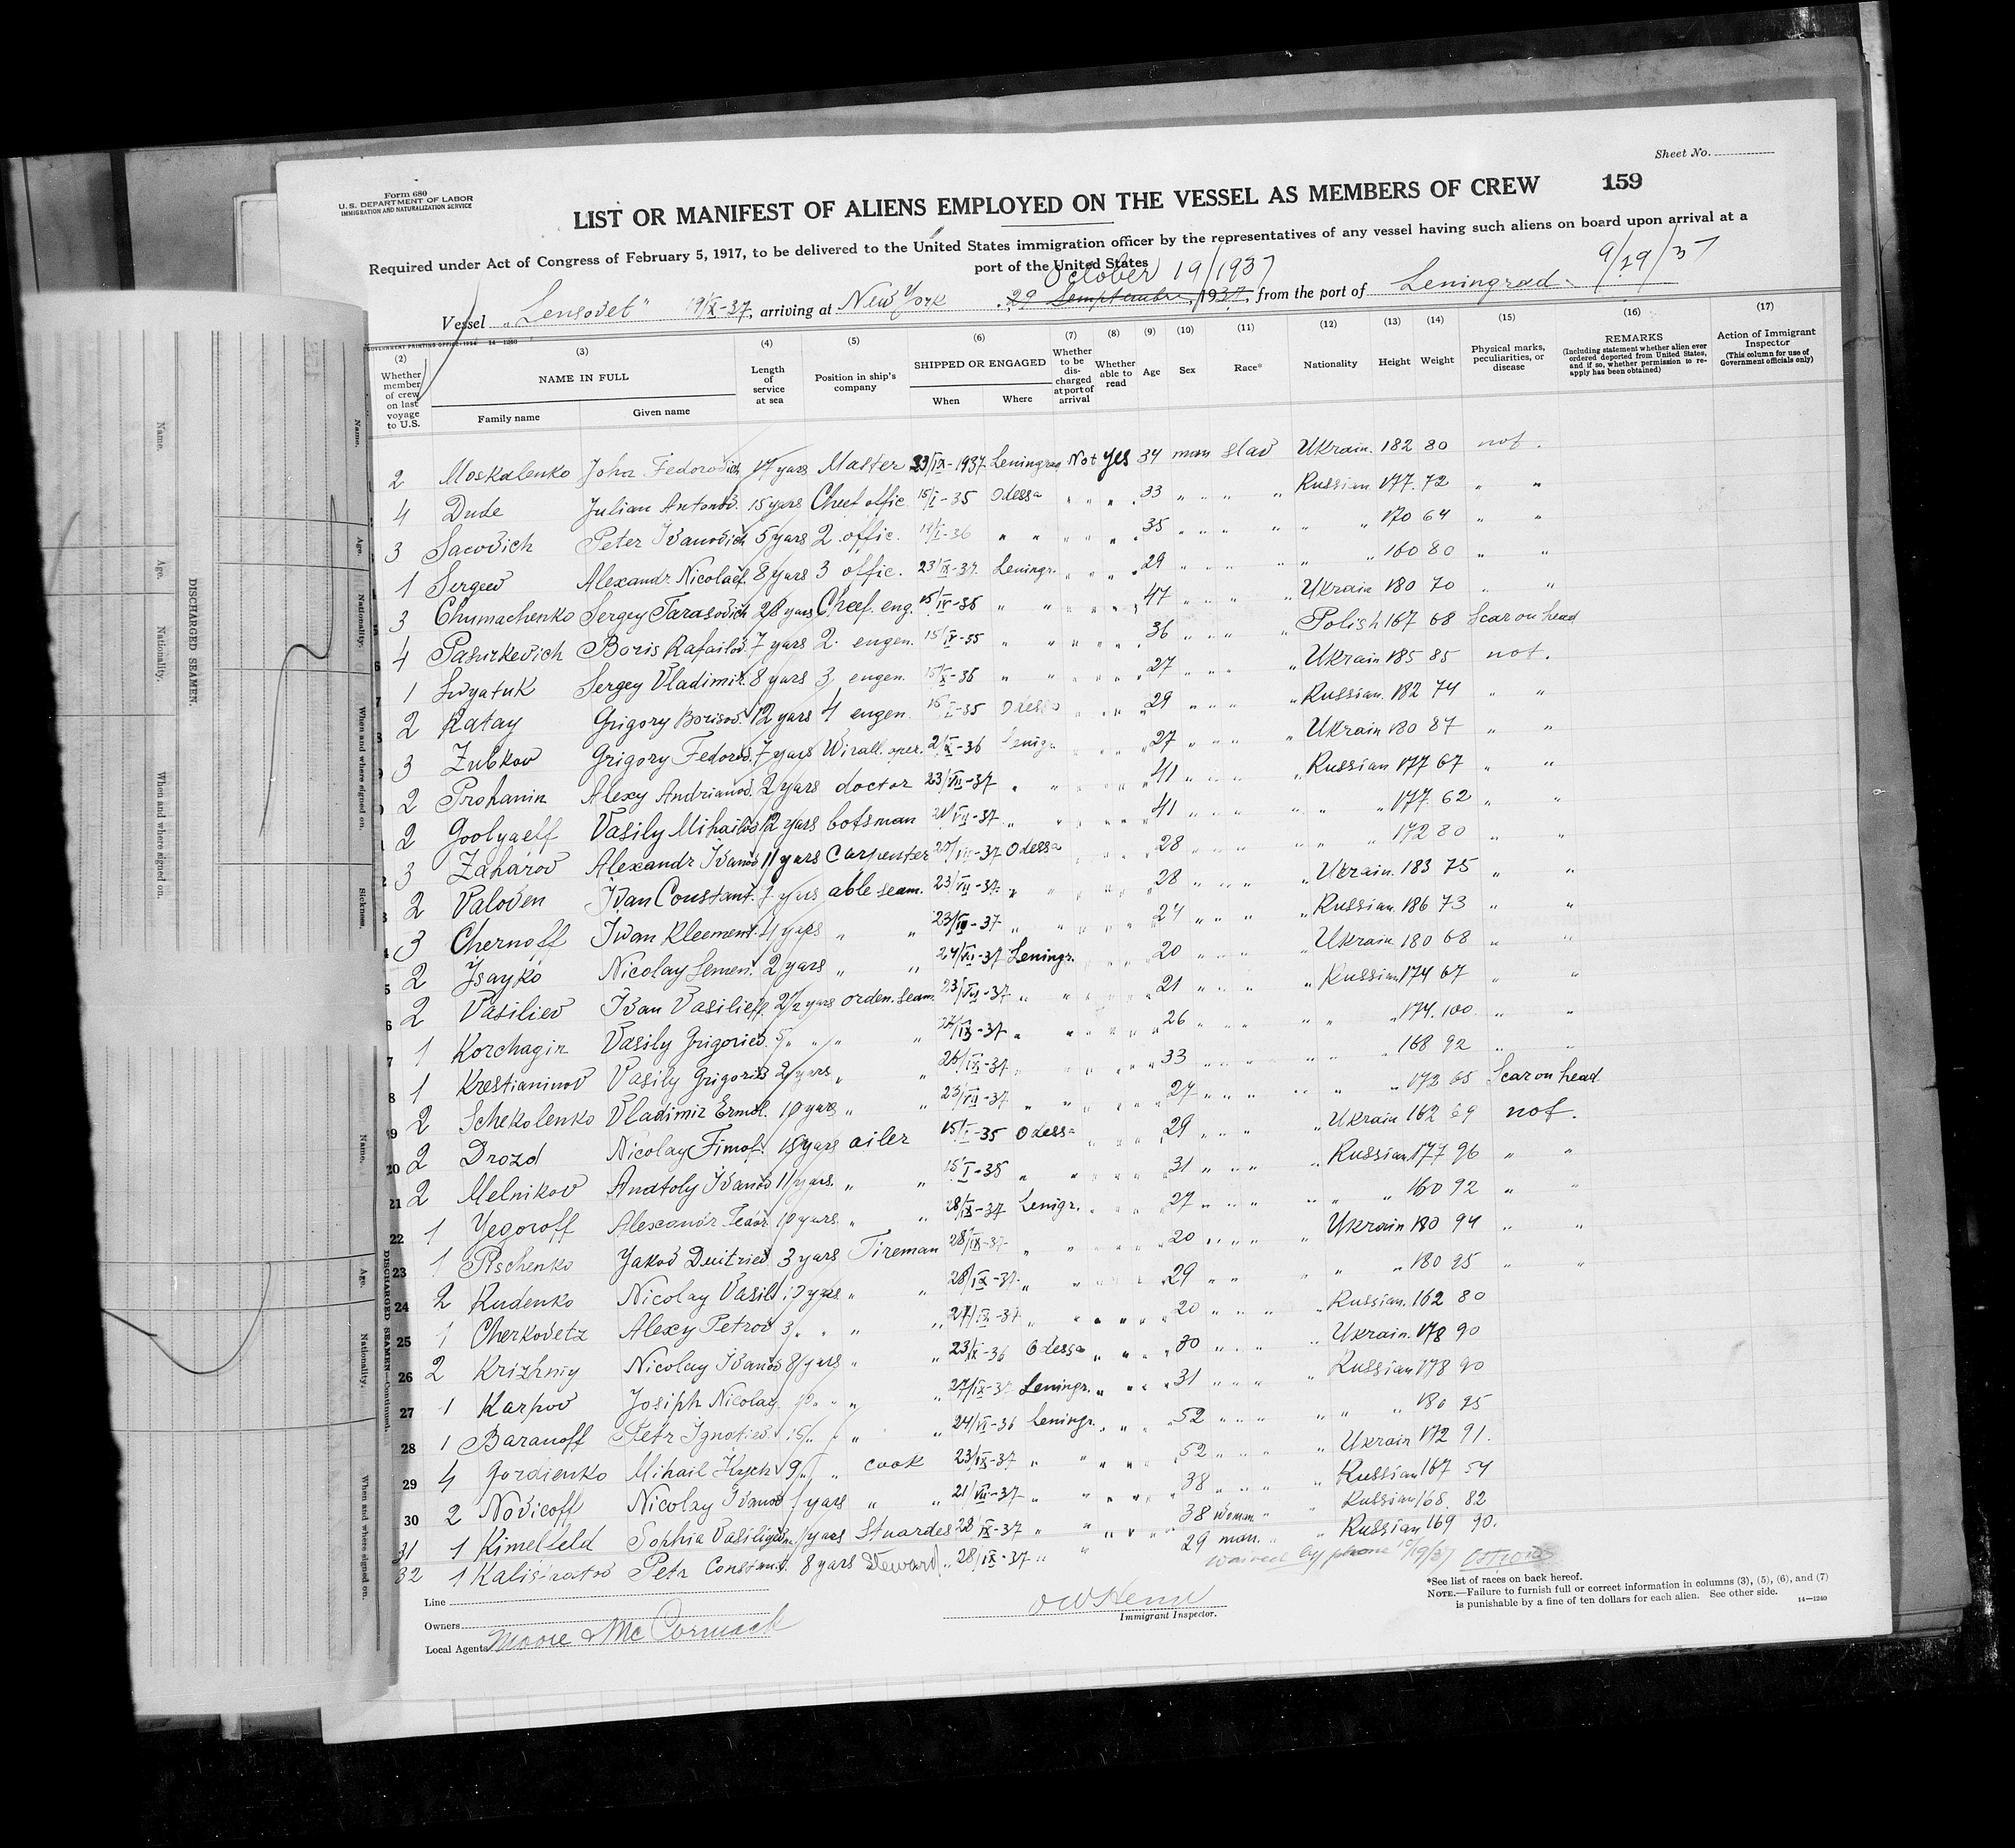 Sheet No.
Form 680
U.S. DEPARTMENT OF LABOR
IMMIGRATION AND NATURALIZATION SERVICE
LIST OR MANIFEST OF ALIENS EMPLOYED ON THE VESSEL AS MEMBERS OF CREW 159
Required under Act of Congress of February 5, 1917, to be delivered to the United States immigration officer by the representatives of any vessel having such aliens on board upon arrival at a
port of the United States
October 19/1937 9/29/37
Vessel "Lensovet" 19/X-37, arriving at New York, 29 Semptember, 1937, from the port of Leningrad
GOVERNMENT PRINTING OFFICE: 1934 14—1240
(2) (3) (4) (5) (6) (7) (8) (9) (10) (11) (12) (13) (14) (15) (16) (17)
Whether member of crew on last voyage to U.S. NAME IN FULL Length of service at sea Position in ship's company SHIPPED OR ENGAGED Whether to be discharged at port of arrival Whether able to read Age Sex Race* Nationality Height Weight Physical marks, peculiarities, or disease REMARKS (Including statement whether alien ever ordered deported from United States, and if so, whether permission to reapply has been obtained) Action of Immigrant Inspector (This column for use of Government officials only)
Family name Given name When Where
2 Moskalenko John Fedorovich 17 years Master 23/IX-1937 Leningrad Not yes 34 man slav Ukrain. 182 80 not.
4 Dude Julian Antonov. 15 years Cheef offic. 15/I-35 Odessa " " " 33 " " " " Russian 177 72 " "
3 Sacovich Peter Ivanovich 5 years 2 offic. 19/I-36 " " " " " 35 " " " " " " 170 64 " "
1 Sergeev Alexandr Nicolaef. 8 years 3 offic. 23/IX-37 Leningr. " " " 29 " " " " " " 160 80 " "
3 Chumachenko Sergey Tarasovich 28 years Cheef. eng. " " " " " 47 " " " " Ukrain 180 70 " "
4 Pasurkevich Boris Rafailov. 7 years 2. engen. " " " " " 36 " " " " Polish 167 68 Scar on head
1 Swyatuk Sergey Vladimir. 8 years 3 engen. " " " " " 27 " " " " Ukrain 185 85 not.
2 Katay Grigory Borisov. 12 years 4 engen. Odessa " " " 29 " " " " Russian. 182 74 " "
3 Zubkov Grigory Fedorov. 7 years Wirall. oper. 2/X-36 Lenigr. " " " 27 " " " " Ukrain 180 87 " "
2 Prohanin Alexy Andrianov. 2 years doctor 23/VII-37 " " " " " 41 " " " " Russian 177 67 " "
2 Goolyaeff Vasily Mihailov 12 years botsman 21/VII-37 " " " " 41 " " " " " " 177. 62 " "
3 Zaharov Alexandr Ivanov 11 years Carpenter Odessa " " " 28 " " " " " " 172 80 " "
2 Valoven Ivan Constant. years able seam. 23/VII-37 " " " " " 28 " " " " Ukrain. 183 75 " "
3 Chernoff Iwan Kleement. 4 years " " 23/VII-37 " " " " " 24 " " " " Russian. 186 73 " "
2 Jsayko Nicolay Semen. 2 years " " 24/VII-37 Leningr. " " " 20 " " " " Ukrain 180 68 " "
2 Vasiliev Ivan Vasilieff. 2½ years orden. seam. 23/VII-37 " " " " " 21 " " " " Russian 174 67 " "
1 Korchagin Vasily Grigoriev. 5 " " " " " " " " 26 " " " " " " 174. 100 " "
1 Krestianinov Vasily Grigoriev 2 years " " 26/IX-37 " " " " " 33 " " " " " " 168 92 " "
2 Schekolenko Vladimir Ermol. 10 years " " 23/VII-37 " " " " " 27 " " " " " " 172 65 Scar on head
2 Drozd Nicolay Timof. 15 years oiler 15/I-35 Odessa " " " 29 " " " " Ukrain 162 69 not.
2 Melnikov Anatoly Ivanov 11 years. " " 15/I-35 " " " " " 31 " " " " Russian. 177 96 " "
1 Yegoroff Alexandr Fedor. 10 years. " " 28/IX-37 Lenigr. " " " 27 " " " " " " 160 92 " "
1 Pischenko Jakov Dmitriev. 3 years Fireman 28/IX-37 " " " " " 20 " " " " Ukrain 180 94 " "
2 Rudenko Nicolay Vasil. years " " 28/IX-37 " " " " " 29 " " " " " 180 95 " "
1 Cherkovetz Alexy Petrov 3 " " " " 27/IX-37 " " " " " 20 " " " " Russian. 162 80
2 Krizhniy Nicolay Ivanov 8 years " " 23/X-36 Odessa " " " 30 " " " " Ukrain. 178 90
1 Karpov Josiph Nicolay. 10 " " " " 27/IX-37 Leningr. " " " 31 " " " " Russian 178 90
1 Baranoff Petr Ignatiev. 15 " " " 24/VI-36 Leningr. " " " 52 " " " " " " 180 95
4 Gordienko Mihail 9 " " cook 23/IX-37 " " " " " 52 " " " " Ukrain 172 91.
2 Novicoff Nicolay Ivanov 1 years " " 21/VII-37 " " " " " 38 " " " " Russian 167 54
1 Kimelfeld Sophia Vasilievna 1 years Stuardes 28/IX-37 " " " " " 38 woman " " Russian 168. 82
32 1 Kalistratov Petr Constant. 8 years Steward " 28/IX-37 " " 29 man. " " Russian 169 90.
waived by phone 10/19/37
*See list of races on back hereof.
NOTE.—Failure to furnish full or correct information in columns (3), (5), (6), and (7)
is punishable by a fine of ten dollars for each alien. See other side.
14—1240
Line
Owners
Local Agents Moore & McCormack
Immigrant Inspector.
DISCHARGED SEAMEN.
Name. Age. Nationality. When and where signed on. Sickness.
DISCHARGED SEAMEN—Continued.
Name. Age. Nationality. When and where signed on.